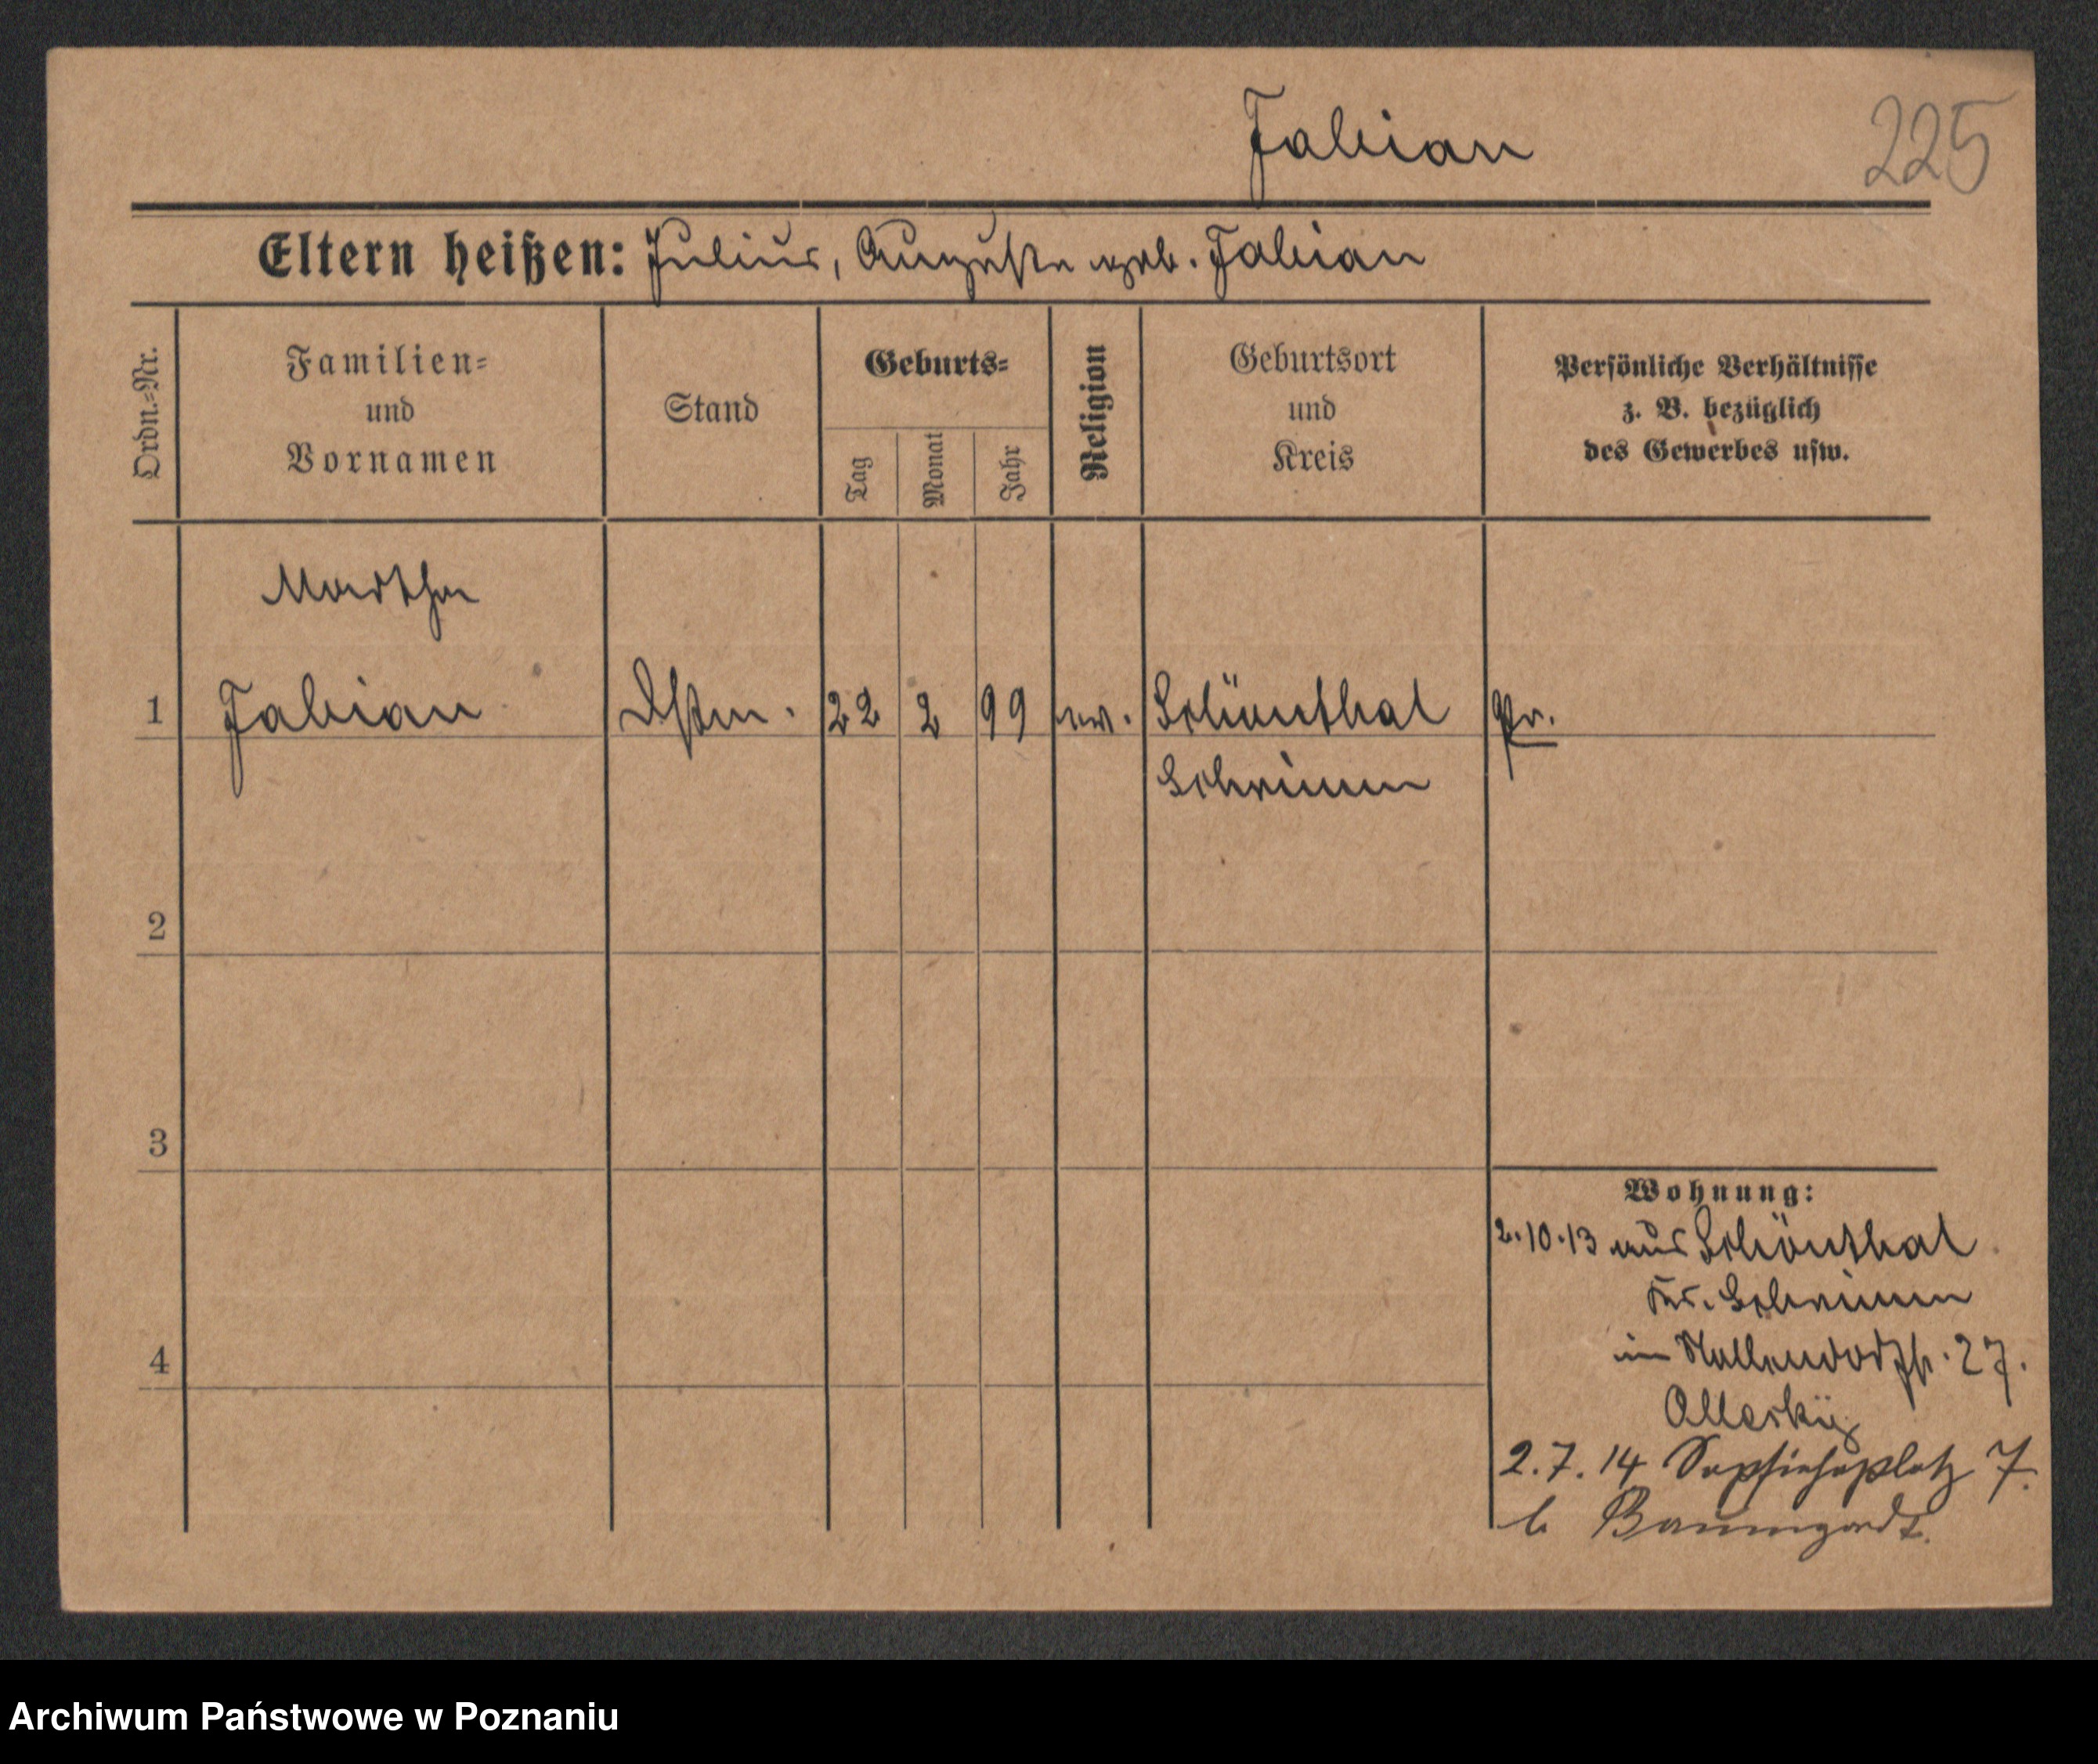 Fabian
225
Eltern heißen: Julius, Auguste geb. Fabian
Ordn.-Nr.
Familien-
und
Vornamen
Stand
Geburts-
Tag
Monat
Jahr
Religion
Geburtsort
und
Kreis
Persönliche Verhältnisse
z. B. bezüglich
des Gewerbes usw.
Martha
1 Fabian Dstm. 22 2 99 ev. Schönthal Pr.
Schrimm
2
3
4
Wohnung:
2.10.13 aus Schönthal
Krs. Schrimm
in Nollendorfstr. 27.
2.7.14 Sapiehaplatz 7.
b Baumgardt.
Archiwum Państwowe w Poznaniu